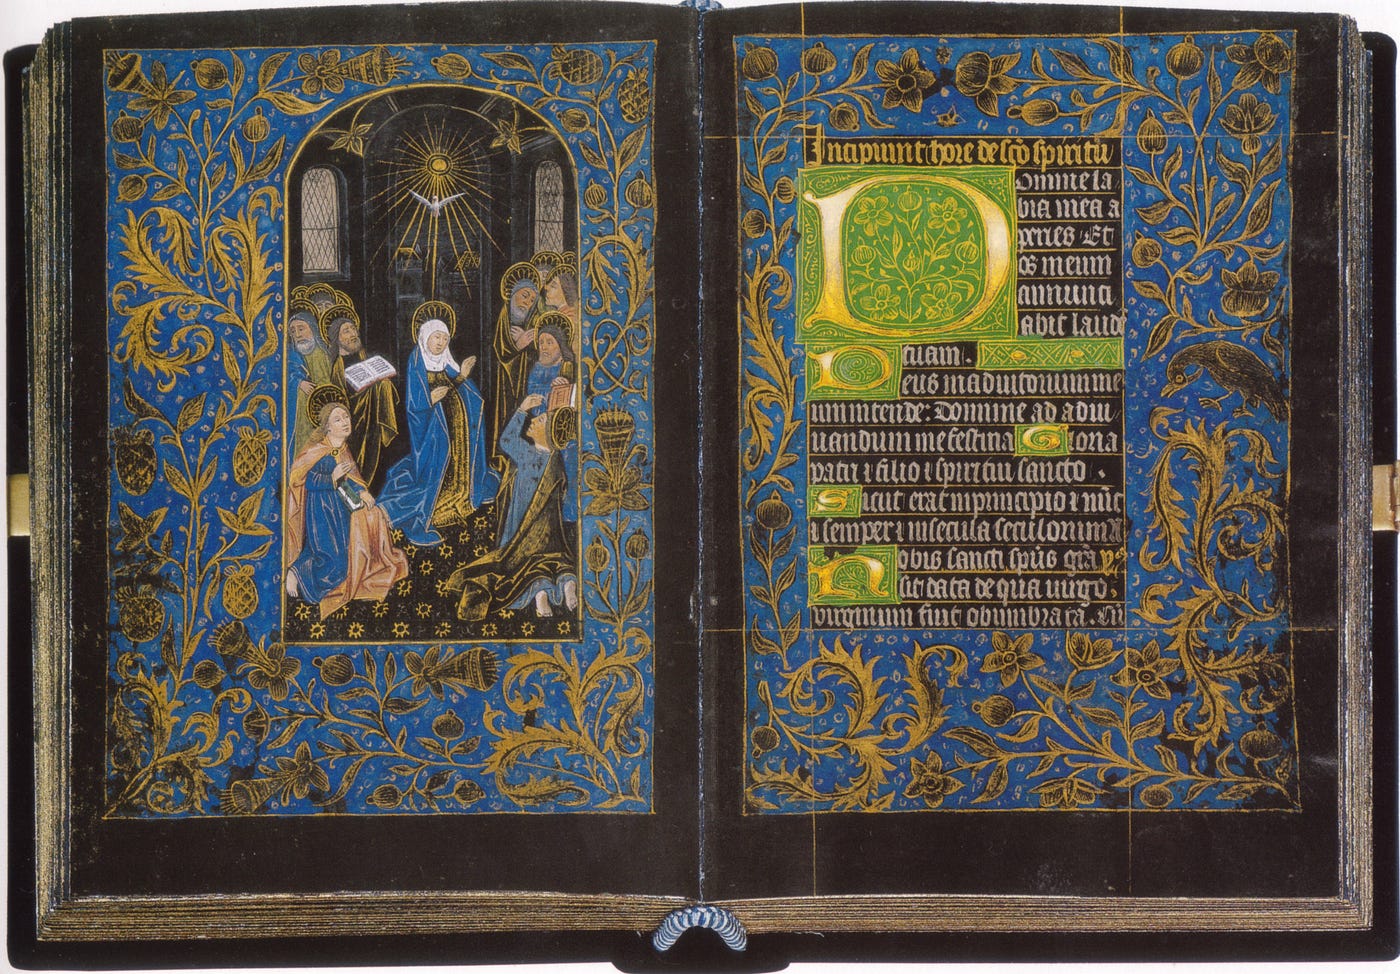 Incipiunt hore de sco spiritu
Domine la
bia mea a
peries · Et
os meum
annunci
abit laude
tuam .
Deus in adiutorium me
um intende : Domine ad adiu
uandum me festina Gloria
patri ⁊ filio ⁊ spiritui sancto .
Sicut erat in principio ⁊ nūc
⁊ semper ⁊ in secula seculorum A
Nobis sancti spūs grā
sit data de qua uirgo
virginum fuit obumbrata . Cū